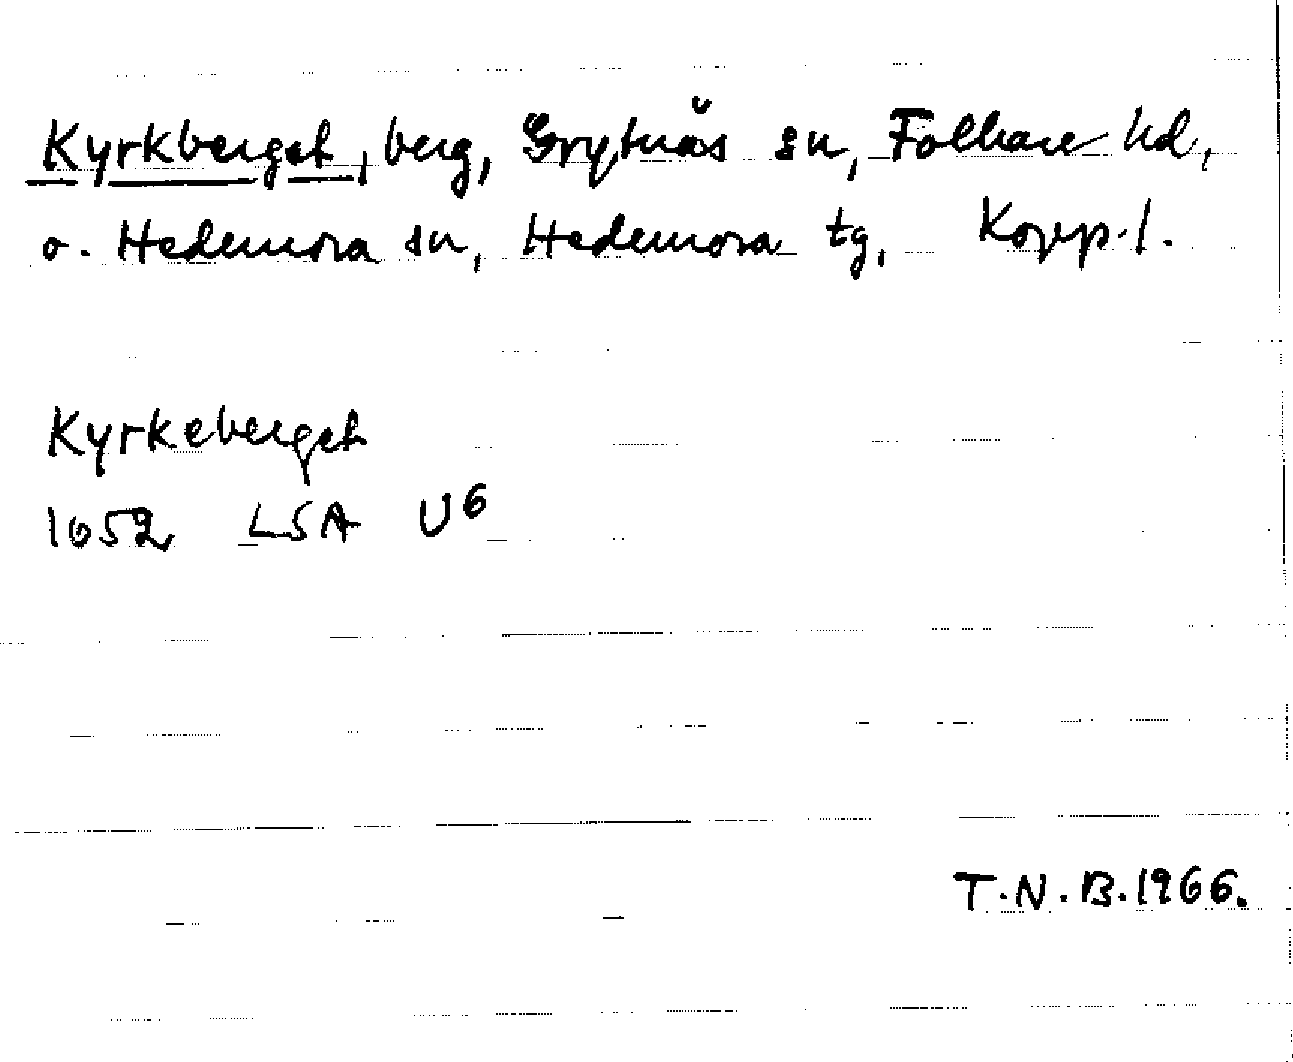 Kyrkberget, berg, Grytnäs sn, Folkare hd,
o. Hedemora sn, Hedemora tg, Kopp. l.
Kyrkeberget
1652 LSA U6
T.N.B. 1966.